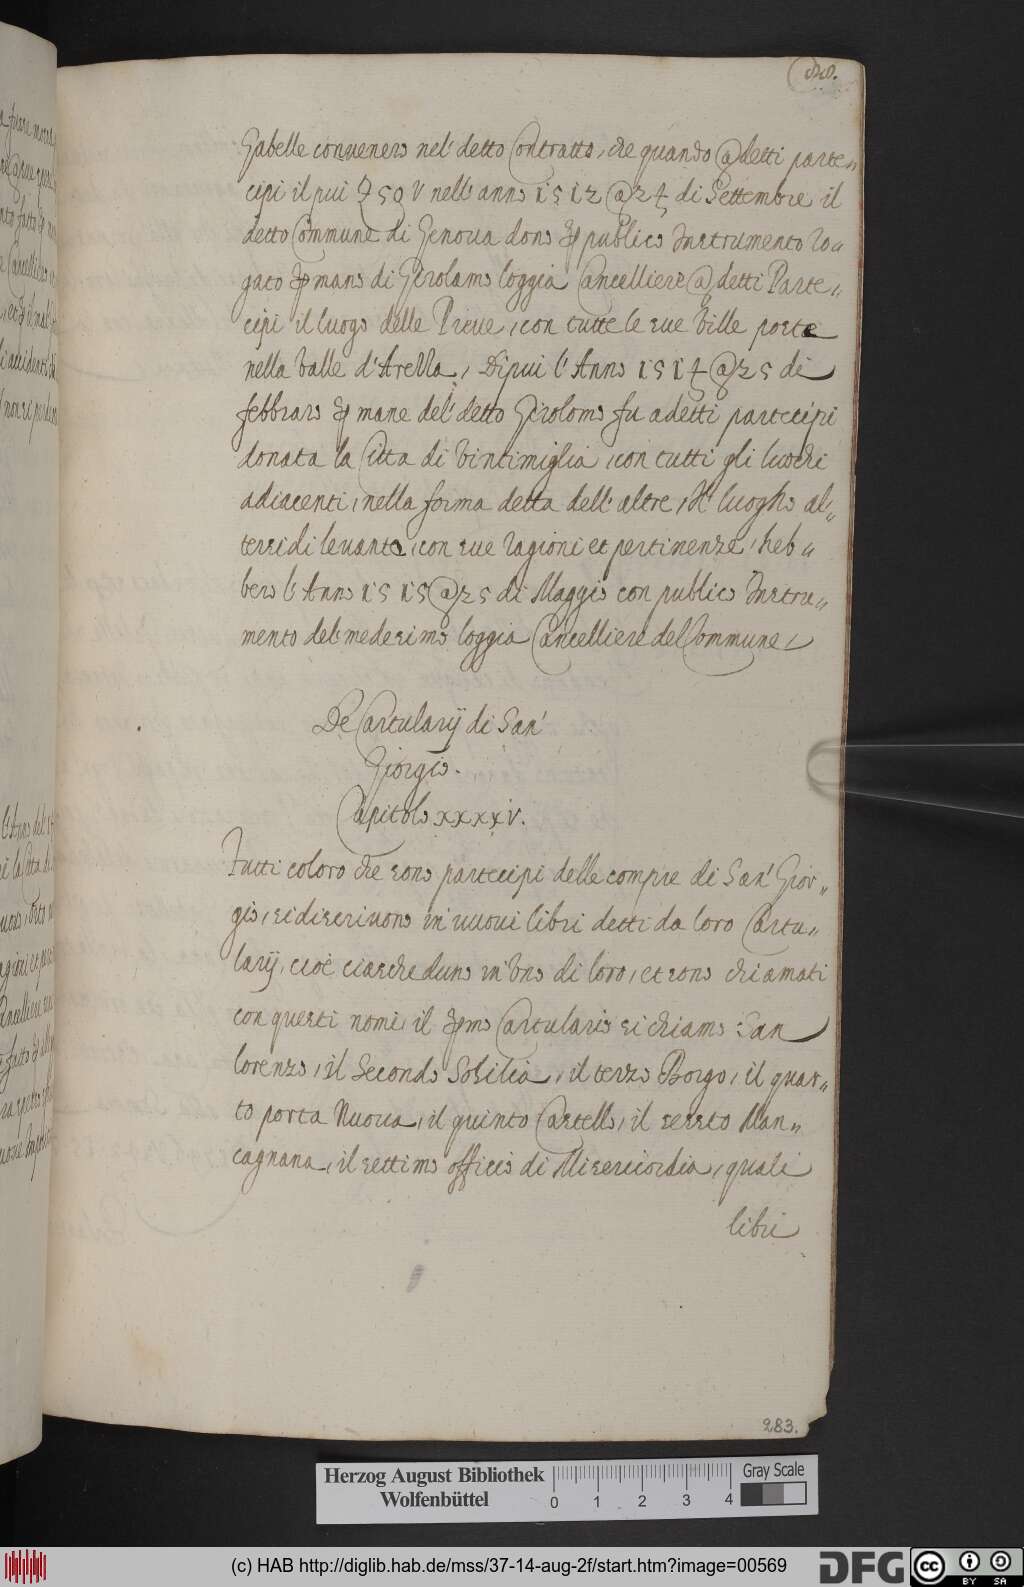 Gabelle convenero nel' detto Contratto, che quando @ detti parte„
cipi il piu nell'anno 1512 @ 24 di Settembre il
detto Commune di Genoua dono ꝑ publico Instrumento ro„
gato ꝑ mano di Girolamo loggia Cancelliere @ detti Parte„
cipi il luogo delle Pieue, con tutte le sue Ville poste
nella Valle d'Arella, Dipiu l'Anno 1514 @ 25 di
febbraro ꝑ mane del' detto Girolomo fu a detti partecipi
donata la Citta di Vintimiglia, con tutti gli luochi
adiacenti, nella forma detta dell'altre, Il' luogho al„
tersi di leuante, con sue ragioni et pertinenze, heb„
bero l'Anno 1515 @ 25 di Maggio con publico Instru„
mento del medesimo loggia Cancelliere del Commune,
De Cartularij di San'
Giorgio.
Capitolo xxxxiv.
Tutti coloro che sono partecipi delle compre di San' Gior„
gio, si discriuono in nuoui libri detti da loro Cartu„
larij, cioè ciascheduno in Vno di loro, et sono chiamati
con questi nomi, il ꝑmo Cartulario si chiama San
lorenzo, il Secondo Sosilia, il terzo Borgo, il quar„
to porta Nuoua, il quinto Castello, il sexto Man„
cagnana, il settimo officio di Misericordia, quali
libri
283.
Herzog August Bibliothek
Wolfenbüttel
0 1 2 3 4
Gray Scale
(c) HAB http://diglib.hab.de/mss/37-14-aug-2f/start.htm?image=00569
DFG
cc BY SA